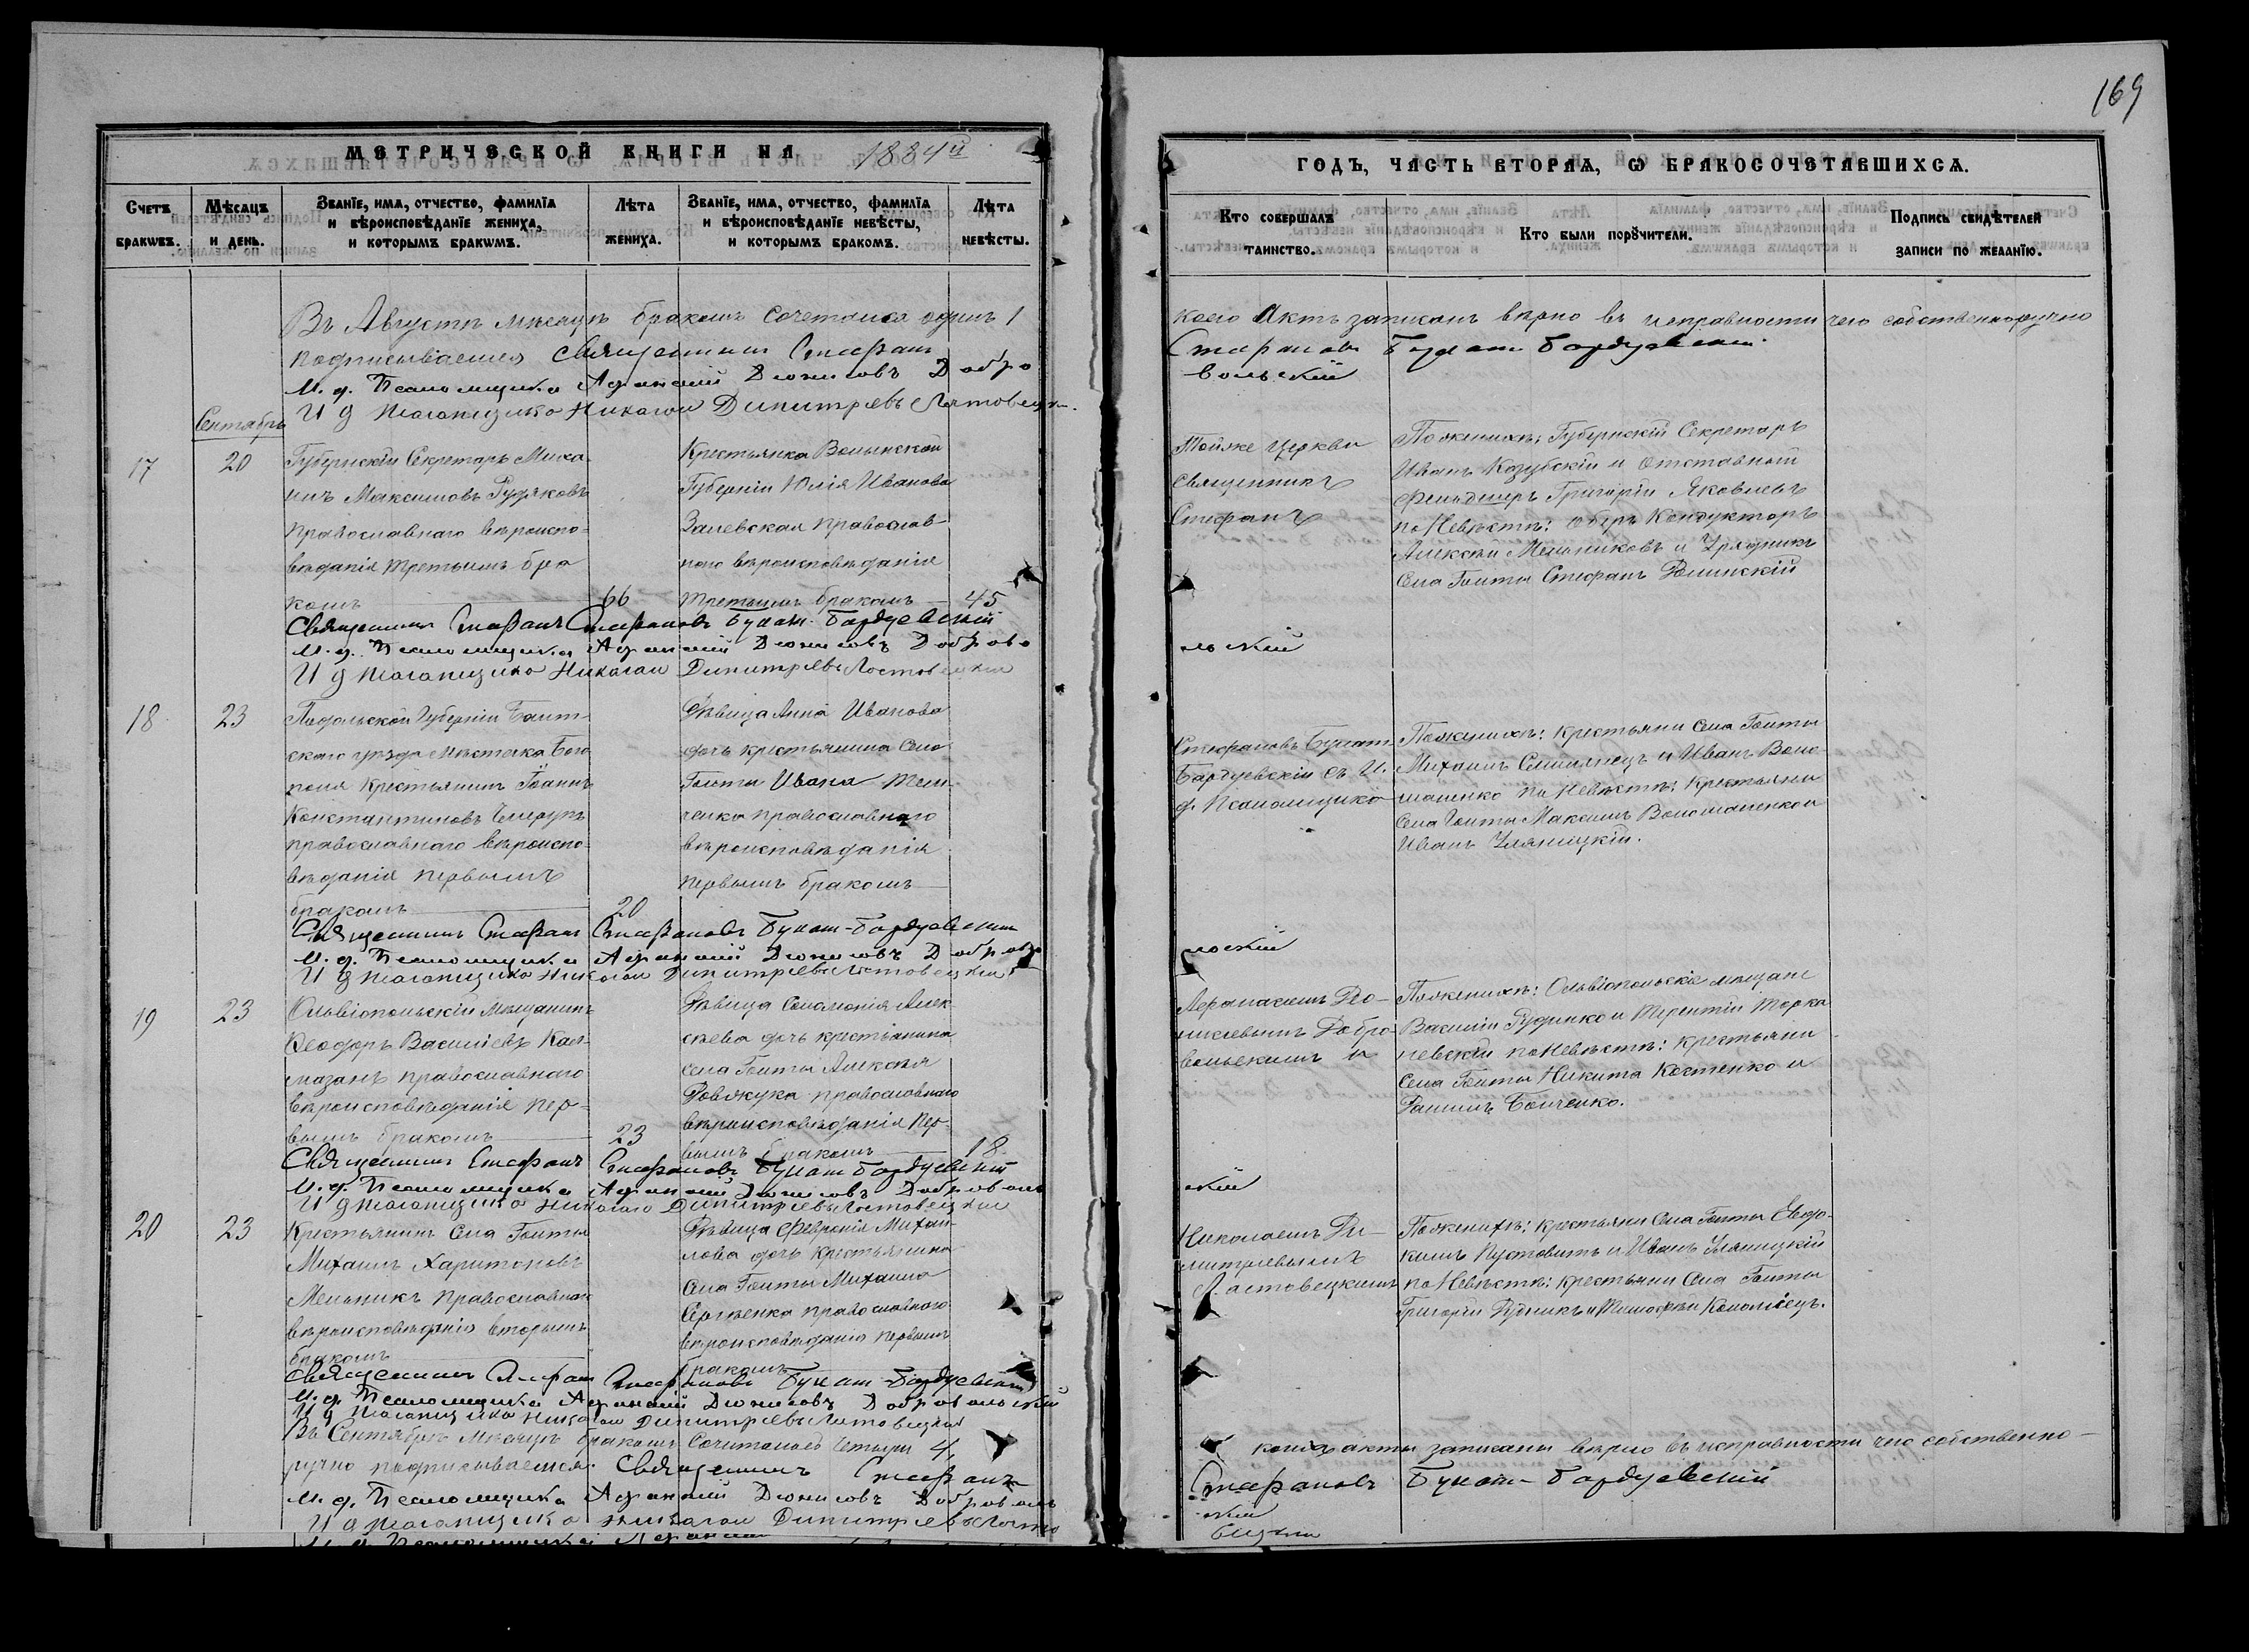 169
МЕТРИЧЕСКОЙ КНИГИ НА 1884й
ГОДЪ, ЧАСТЬ ВТОРАѦ, Ѡ БРАКОСОЧЕТАВШИХСѦ.
Счетъ браковъ.
Мѣсяцъ и день.
Званїе, имѧ, отчество, фамилїа
и вѣроисповѣданїе жениха,
и которымъ бракѡмъ.
Лѣта жениха.
Званїе, имѧ, отчество, фамилїа
и вѣроисповѣданїе невѣсты,
и которымъ бракомъ.
Лѣта невѣсты.
Кто совершалъ таинство.
Кто были порꙋчители.
Подпись свидѣтелей
записи по желанїю.
Въ Августѣ мѣсяцѣ бракомъ сочетался одинъ 1
коего Актъ записанъ вѣрно въ исправности чего собственноручно
подписываемся Священникъ Стефанъ
Стефановъ Букат-Бардуевский
И. д. Псаломщика Афанасий Дионисовъ Добро
вольский
И д Псаломщика Николай Димитріевъ Лястовецкий
Сентябрь
17
20
Губернскій Секретарь Миха
илъ Максимовъ Рудяковъ
православнаго вѣроиспо-
вѣданія третьимъ бра
комъ
66
Крестьянка Волынской
Губерніи Юлія Иванова
Залевская православ-
наго вѣроисповѣданія
третьимъ бракомъ
45
Тойже церкви
священникъ
Стефанъ
По женихѣ: Губернскій Секретарь
Иванъ Козубскій и отставный
Фельдшеръ Григорій Яковлевъ
по Невѣстѣ: оберъ Кондукторъ
Алексѣй Мельниковъ и Урядникъ
Села Голты Стефанъ Ролинскій
Священникъ Стефанъ Стефановъ Букат-Бардуевский
И. д. Псаломщика Афанасий Дионисовъ Доброво
льский
И д Псаломщика Николай Димитріевъ Лястовецкий
18
23
Подольской Губерніи Балт-
скаго уѣзда мѣстечка Бого
поля крестьянинъ Іоаннъ
Константиновъ
православнаго вѣроиспо-
вѣданія первымъ
бракомъ
20
Дѣвица Анна Иванова
дочь крестьянина Села
Голты Ивана
ченка православнаго
вѣроисповѣданія
первымъ бракомъ
Стефановъ Букат-
Бардуевскій съ И.
д. Псаломщика
По женихѣ: крестьяни Села Голты
Михаилъ и Иванъ Воло-
шаненко по Невѣстѣ: крестьяни
Села Голты Максимъ Волошаненко и
Иванъ Уляницкій.
Священникъ Стефанъ Стефановъ Букат-Бардуевский
И. д. Псаломщика Афанасий Дионисовъ Доброво
льский
И д Псаломщика Николай Димитріевъ Лястовецкий
19
23
Ольвіопольскій Мѣщанинъ
Ѳеодоръ Василіевъ Кал-
мазанъ православнаго
вѣроисповѣданія пер-
вымъ бракомъ
23
Дѣвица Соломонія Алек
сѣева дочь крестьянина
села Голты Алексѣя
Довжука православнаго
вѣроисповѣданія пер-
вымъ бракомъ
18
Афанасіемъ Діо-
нисіевымъ Добро-
вольскимъ и
По женихѣ: Ольвіопольскіе мѣщане
Василій Руденко и Терентій Торка
невскій по Невѣстѣ: крестьяни
Села Голты Никита Костенко и
Даніилъ Бойченко.
Священникъ Стефанъ Стефановъ Букат-Бардуевский
И. д. Псаломщика Афанасий Дионисовъ Доброволь
ский
И д Псаломщика Николай Димитріевъ Лястовецкий
20
23
Крестьянинъ Села Голты
Михаилъ Харитоновъ
Мельникъ православнаго
вѣроисповѣданія вторымъ
бракомъ
Дѣвица Февронія Михаи-
лова дочь крестьянина
Села Голты Михаила
Сергѣенка православнаго
вѣроисповѣданія первымъ
бракомъ
Николаемъ Ди-
митріевымъ
Лястовецкимъ
По женихѣ: крестьяни Села Голты Евдо-
кимъ Пустовитъ и Иванъ Уляницкій
по Невѣстѣ: крестьяни Села Голты
Григорій Рудникъ и Тимофѣй Коломіецъ.
Священникъ Стефанъ Стефановъ Букат-Бардуевский
И. д. Псаломщика Афанасий Дионисовъ Добровольский
И д Псаломщика Николай Димитріевъ Лястовецкий
Въ Сентябрѣ мѣсяцѣ бракомъ сочиталось четыри 4,
коихъ акты записаны вѣрно въ исправности чего собственно-
ручно подписываемся: Священникъ Стефанъ
Стефановъ Букат-Бардуевский
И. д. Псаломщика Афанасий Дионисовъ Доброволь
ский
И д Псаломщика Николай Димитріевъ Лясто
вецкий